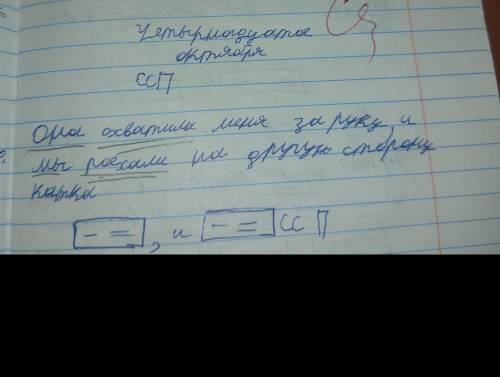 Четырнадцатое
октября
ССП
Она схватила меня за руку, и
мы поехали на другую сторону
катка
[- =], и [- =] ССП